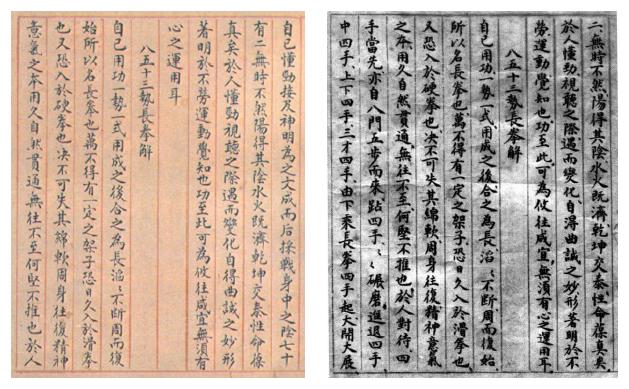 自己懂勁接及神明為之文成而后採戰身中之陰七十
有二無時不然陽得其陰水火既濟乾坤交泰性命葆
真矣於人懂勁視聽之際遇而變化自得曲誠之妙形
著明於不勞運動覺知也功至此可為攸往咸宜無須有
心之運用耳
八五十三勢長拳解
自己用功一勢一式用成之後合之為長滔〻不斷周而復
始所以名長拳也萬不得有一定之架子恐日久入於滑拳
也又恐入於硬拳也决不可失其綿軟周身往復精神
意氣之本用久自然貫通無往不至何堅不推也於人
二無時不然陽得其陰水火既濟乾坤交泰性命葆真矣
於人懂勁視聽之際遇而變化自得曲誠之妙形著明於不
勞運動覺知也功至此可為攸往咸宜無須有心之運用耳
八五十三勢長拳解
自己用功一勢一式用成之後合之為長滔〻不斷周而復始
所以名長拳也萬不得有一定之架子恐日久入於滑拳也
又恐入於硬拳也决不可失其綿軟周身往復精神意氣
之本用久自然貫通無往不至何堅不推也於人對待四
手當先亦自八門五步而來跕四手四手〻〻碾磨進退四手
中四手上下四手三才四手由下乘長拳四手起大開大展